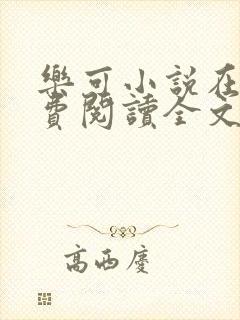 樂可小說在
費閱讀全文
高西慶